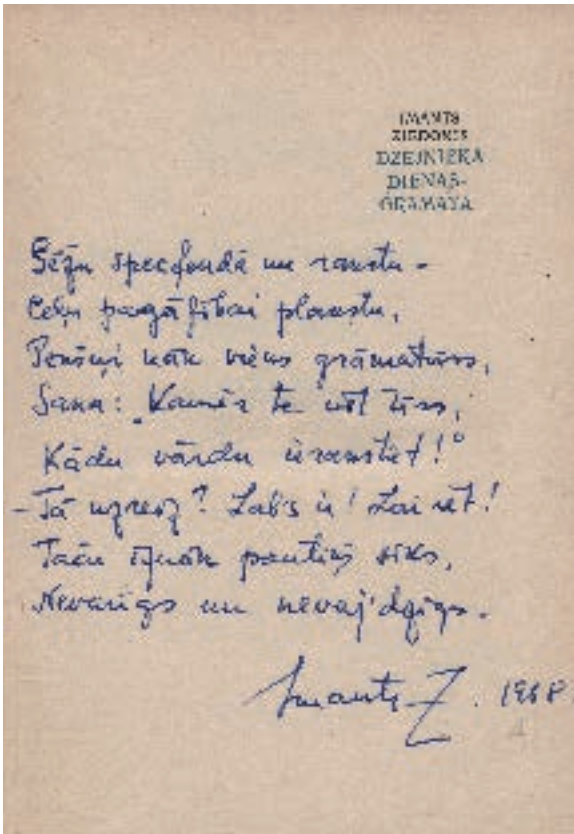 IMANTS
ZIEDONIS
DZEJNIEKA
DIENAS-
GRĀMATA
Sēžu specfondā un rakstu -
Ceļu pagātnei plaukstu,
Pēkšņi nāk viens grāmatvīrs,
Saka: "Kamēr te vēl tīrs,
Kādu vārdu ierakstiet!"
- Tā uzreiz? Labs ir! Lai iet!
Taču iznāk pantiņš sīks,
Nevarīgs un nevajdzīgs.
Imants Z. 1968